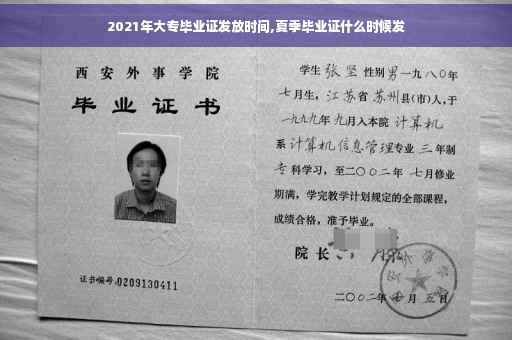 2021年大专毕业证发放时间,夏季毕业证什么时候发
西安外事学院
毕业证书
证书编号:0209130411
学生 张坚 性别 男 一九八〇年
七月生，江苏省 苏州县(市)人，于
一九九九年 九月入本院 计算机
系 计算机信息管理专业 三 年制
专科学习，至二〇〇二年 七月修业
期满，学完教学计划规定的全部课程，
成绩合格，准予毕业。
院 长
二〇〇二年 月 五日